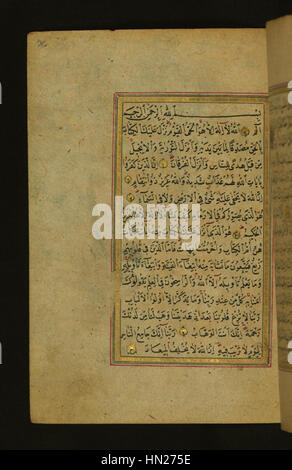 بسم الله الرحمن الرحيم
الم الله لا اله الا هو الحي القيوم نزل عليك الكتاب
بالحق مصدقا لما بين يديه وانزل التورية والانجيل
من قبل هدى للناس وانزل الفرقان ان الذين كفروا
بايات الله لهم عذاب شديد والله عزيز ذو انتقام
ان الله لا يخفى عليه شيء في الارض ولا في السماء
هو الذي يصوركم في الارحام كيف يشاء لا اله الا هو العزيز
الحكيم هو الذي انزل عليك الكتاب منه ايات محكمات
هن ام الكتاب واخر متشابهات فاما الذين في قلوبهم
زيغ فيتبعون ما تشابه منه ابتغاء الفتنة وابتغاء تاويله
وما يعلم تاويله الا الله والراسخون في العلم يقولون
امنا به كل من عند ربنا وما يذكر الا اولوا الالباب
ربنا لا تزغ قلوبنا بعد اذ هديتنا وهب لنا من لدنك
رحمة انك انت الوهاب ربنا انك جامع الناس
ليوم لا ريب فيه ان الله لا يخلف الميعاد
alamy
www.alamy.com
HN275E